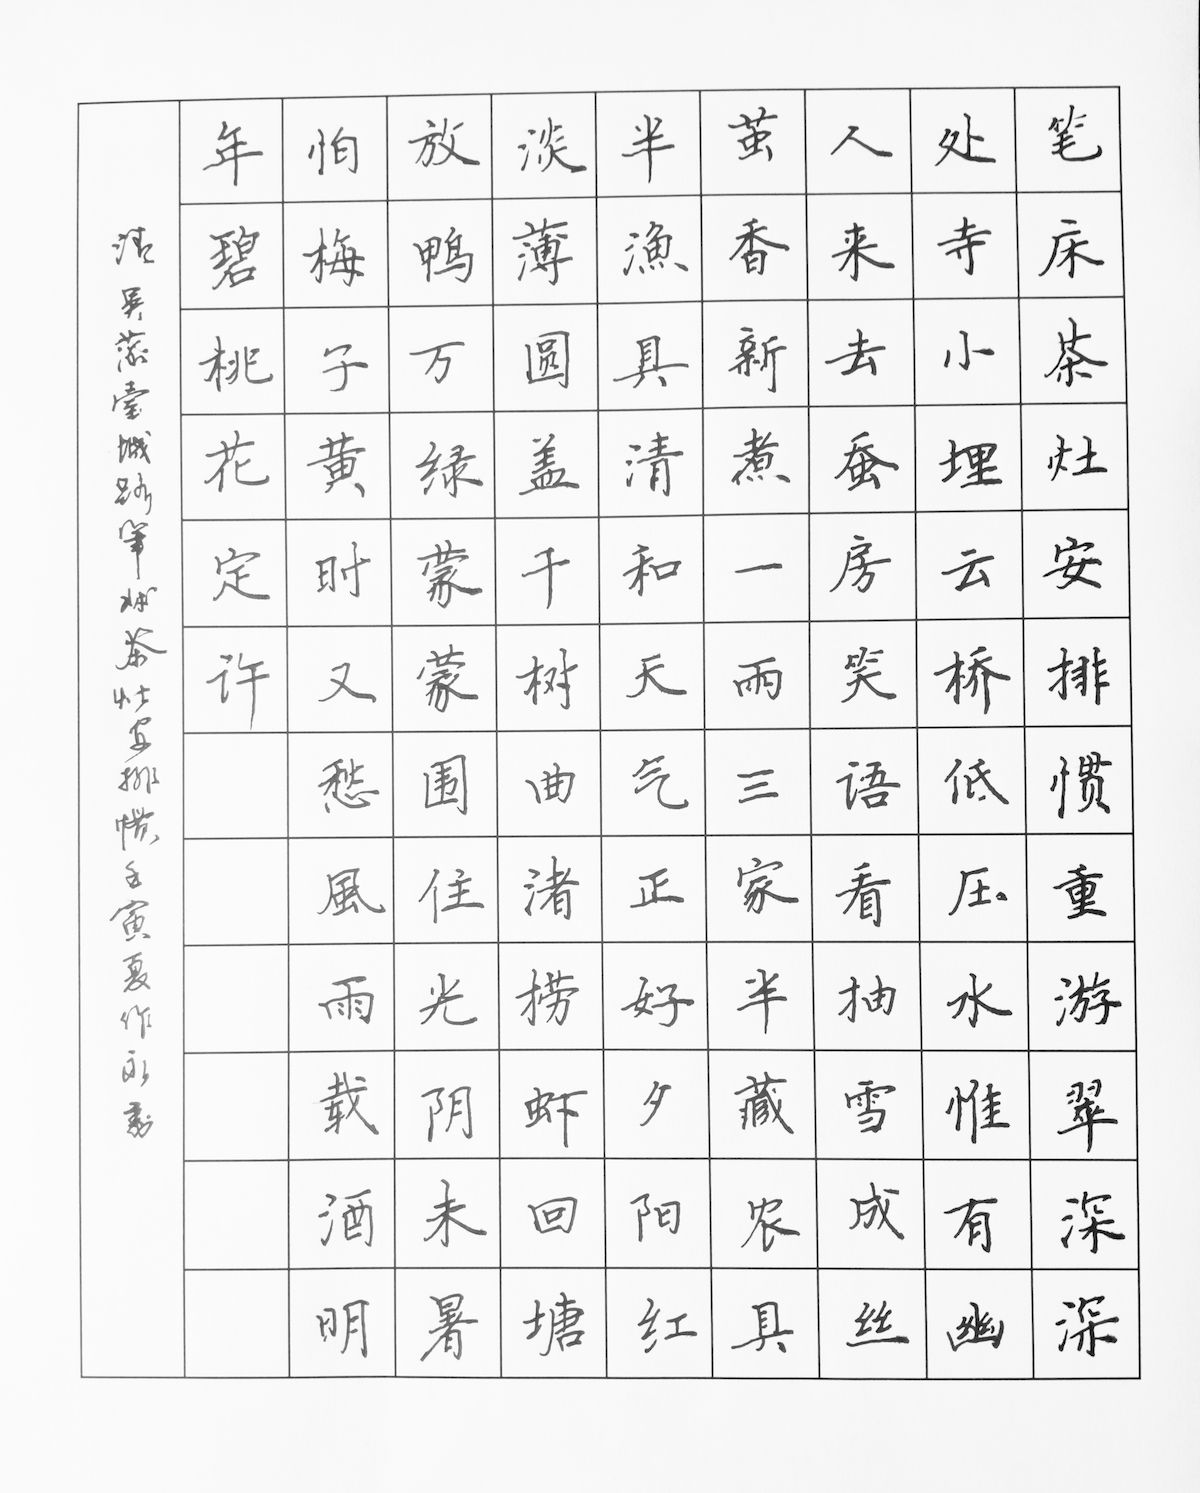 笔床茶灶安排惯重游翠深深
处寺小埋云桥低压水惟有幽
人来去蚕房笑语看抽雪成丝
茧香新煮一雨三家半藏农具
半渔具清和天气正好夕阳红
淡薄圆盖千树曲渚捞虾回塘
放鸭万绿蒙蒙围住光阴未暑
怕梅子黄时又愁風雨载酒明
年碧桃花定许
清吴藻台城路笔床茶灶安排惯壬寅夏作永